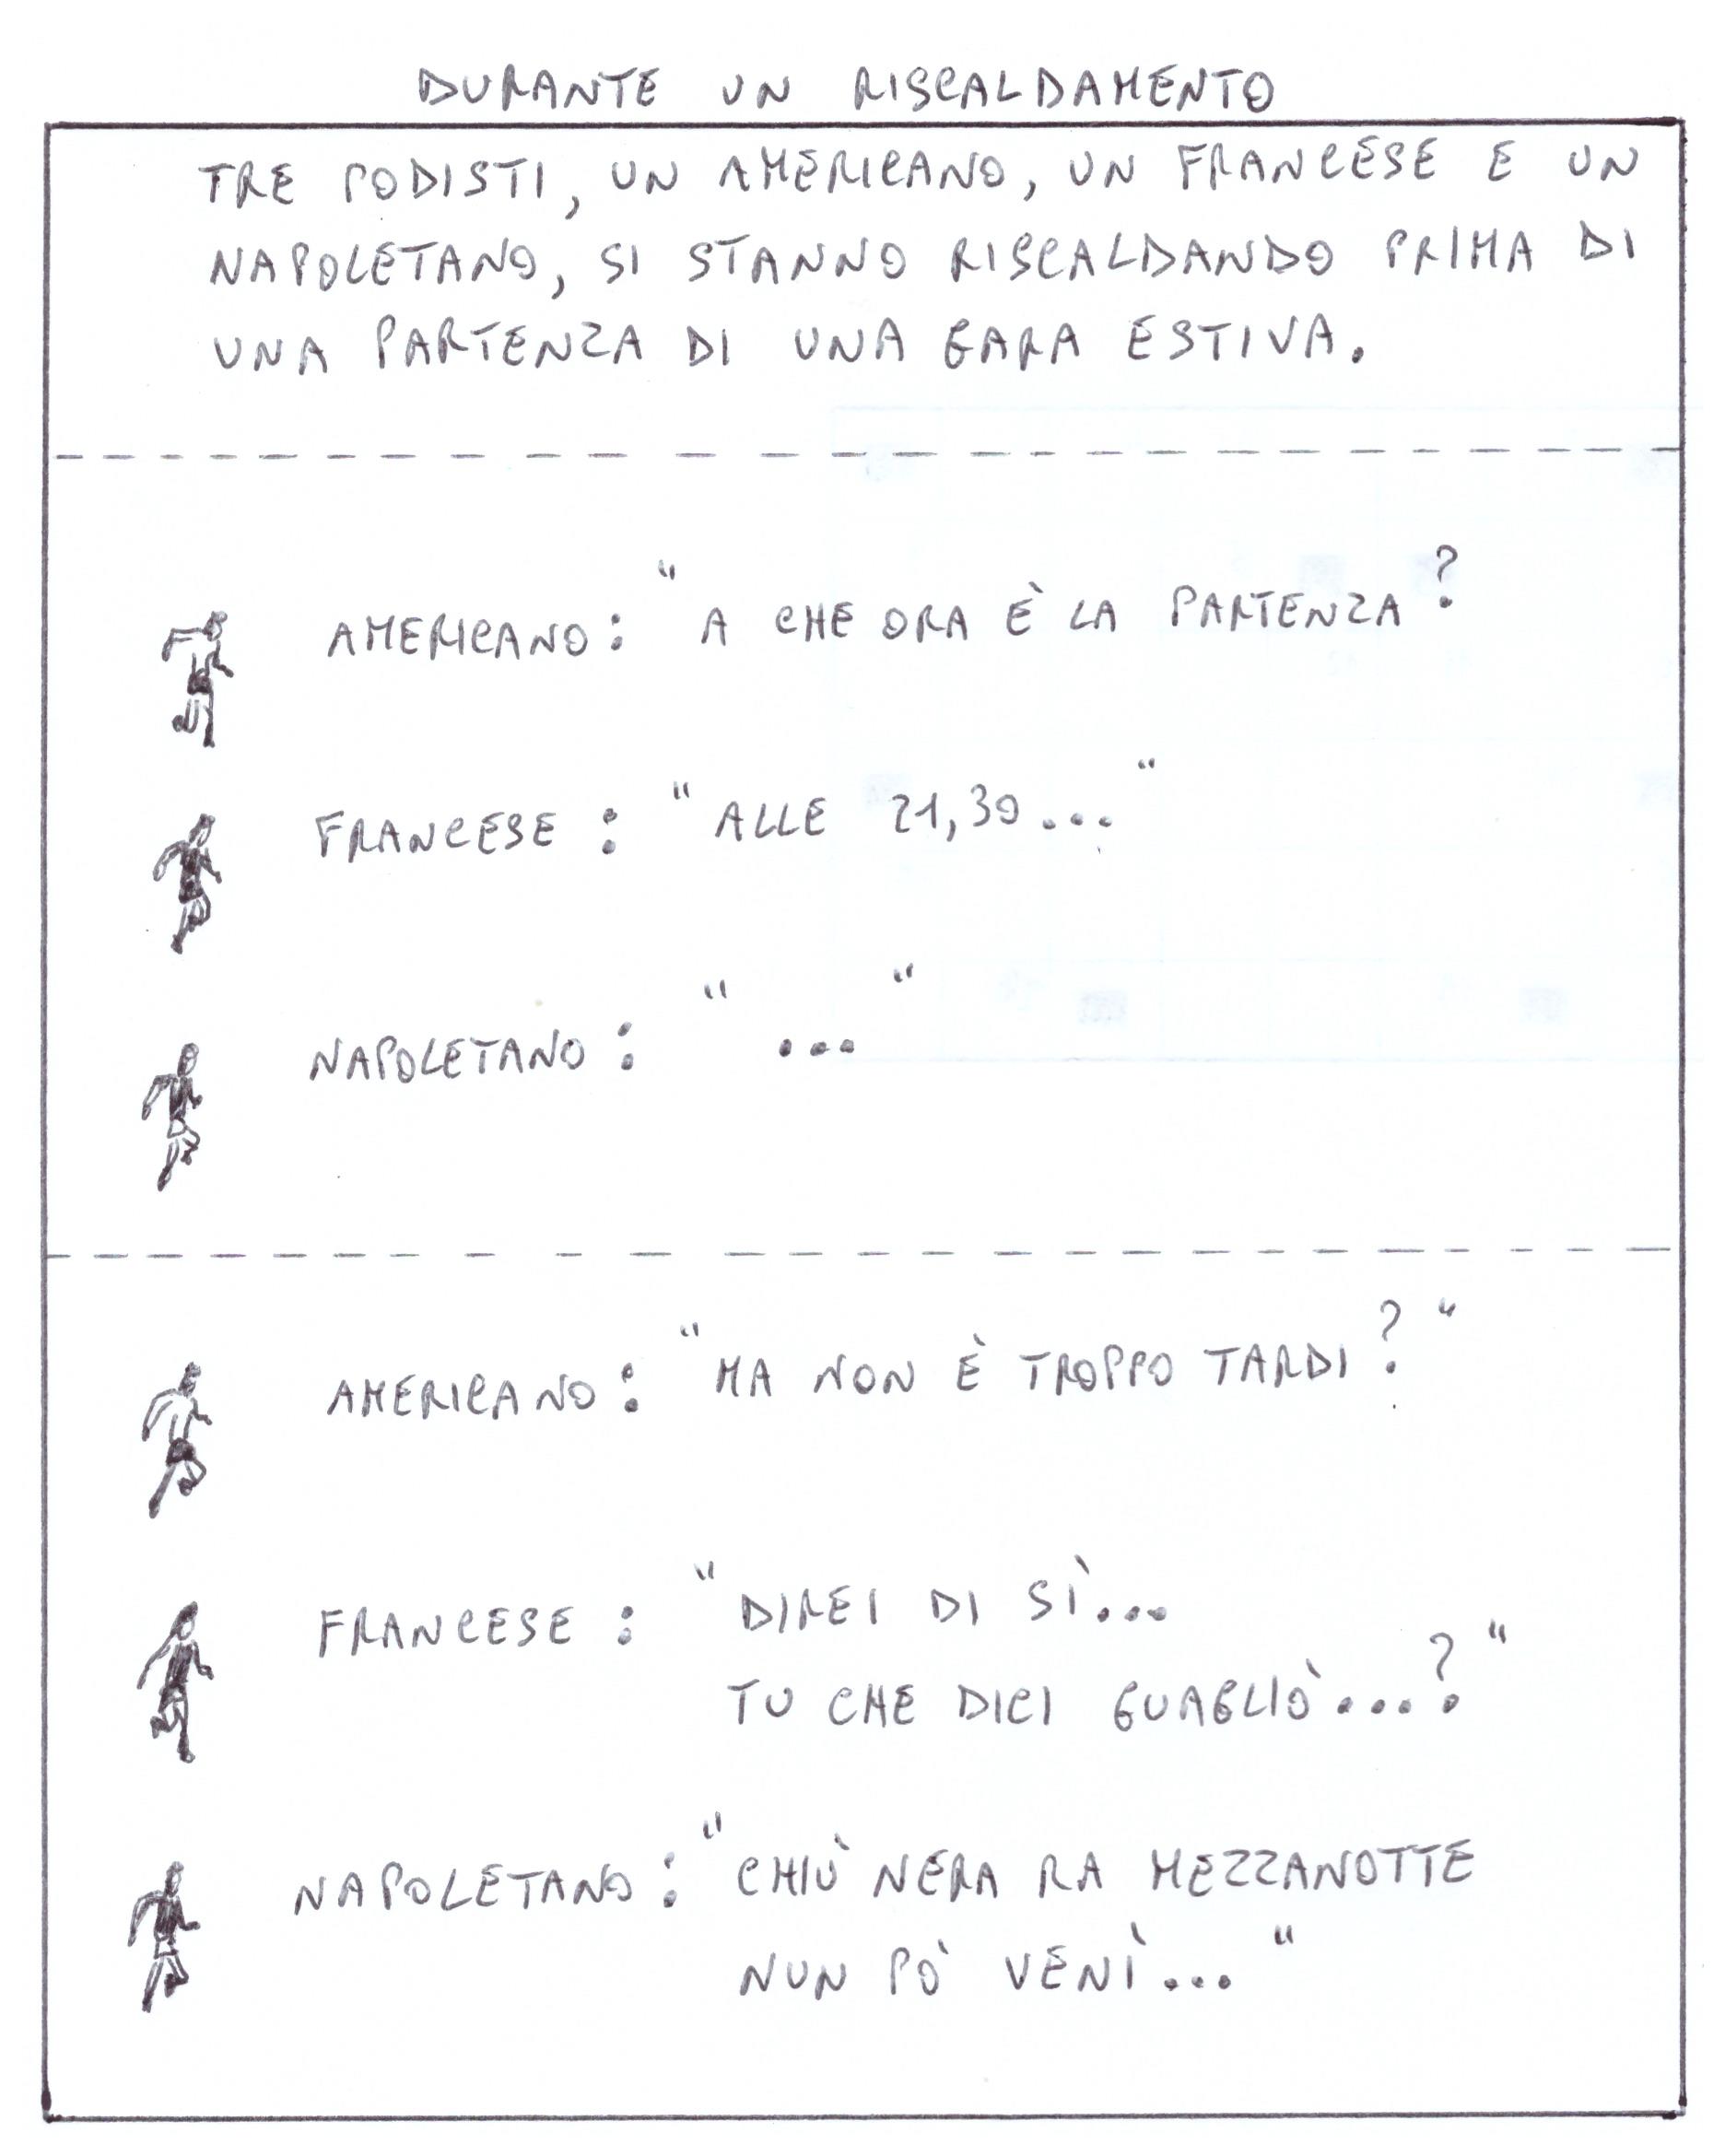 DURANTE UN RISCALDAMENTO
TRE PODISTI, UN AMERICANO, UN FRANCESE E UN
NAPOLETANO, SI STANNO RISCALDANDO PRIMA DI
UNA PARTENZA DI UNA GARA ESTIVA.
AMERICANO: "A CHE ORA È LA PARTENZA?
FRANCESE: "ALLE 21,30..."
NAPOLETANO: "..."
AMERICANO: "MA NON È TROPPO TARDI?"
FRANCESE: "DIREI DI SÌ...
TU CHE DICI GUAGLIÒ...?"
NAPOLETANO: "CHIÙ NERA RA MEZZANOTTE
NUN PÒ VENÌ..."